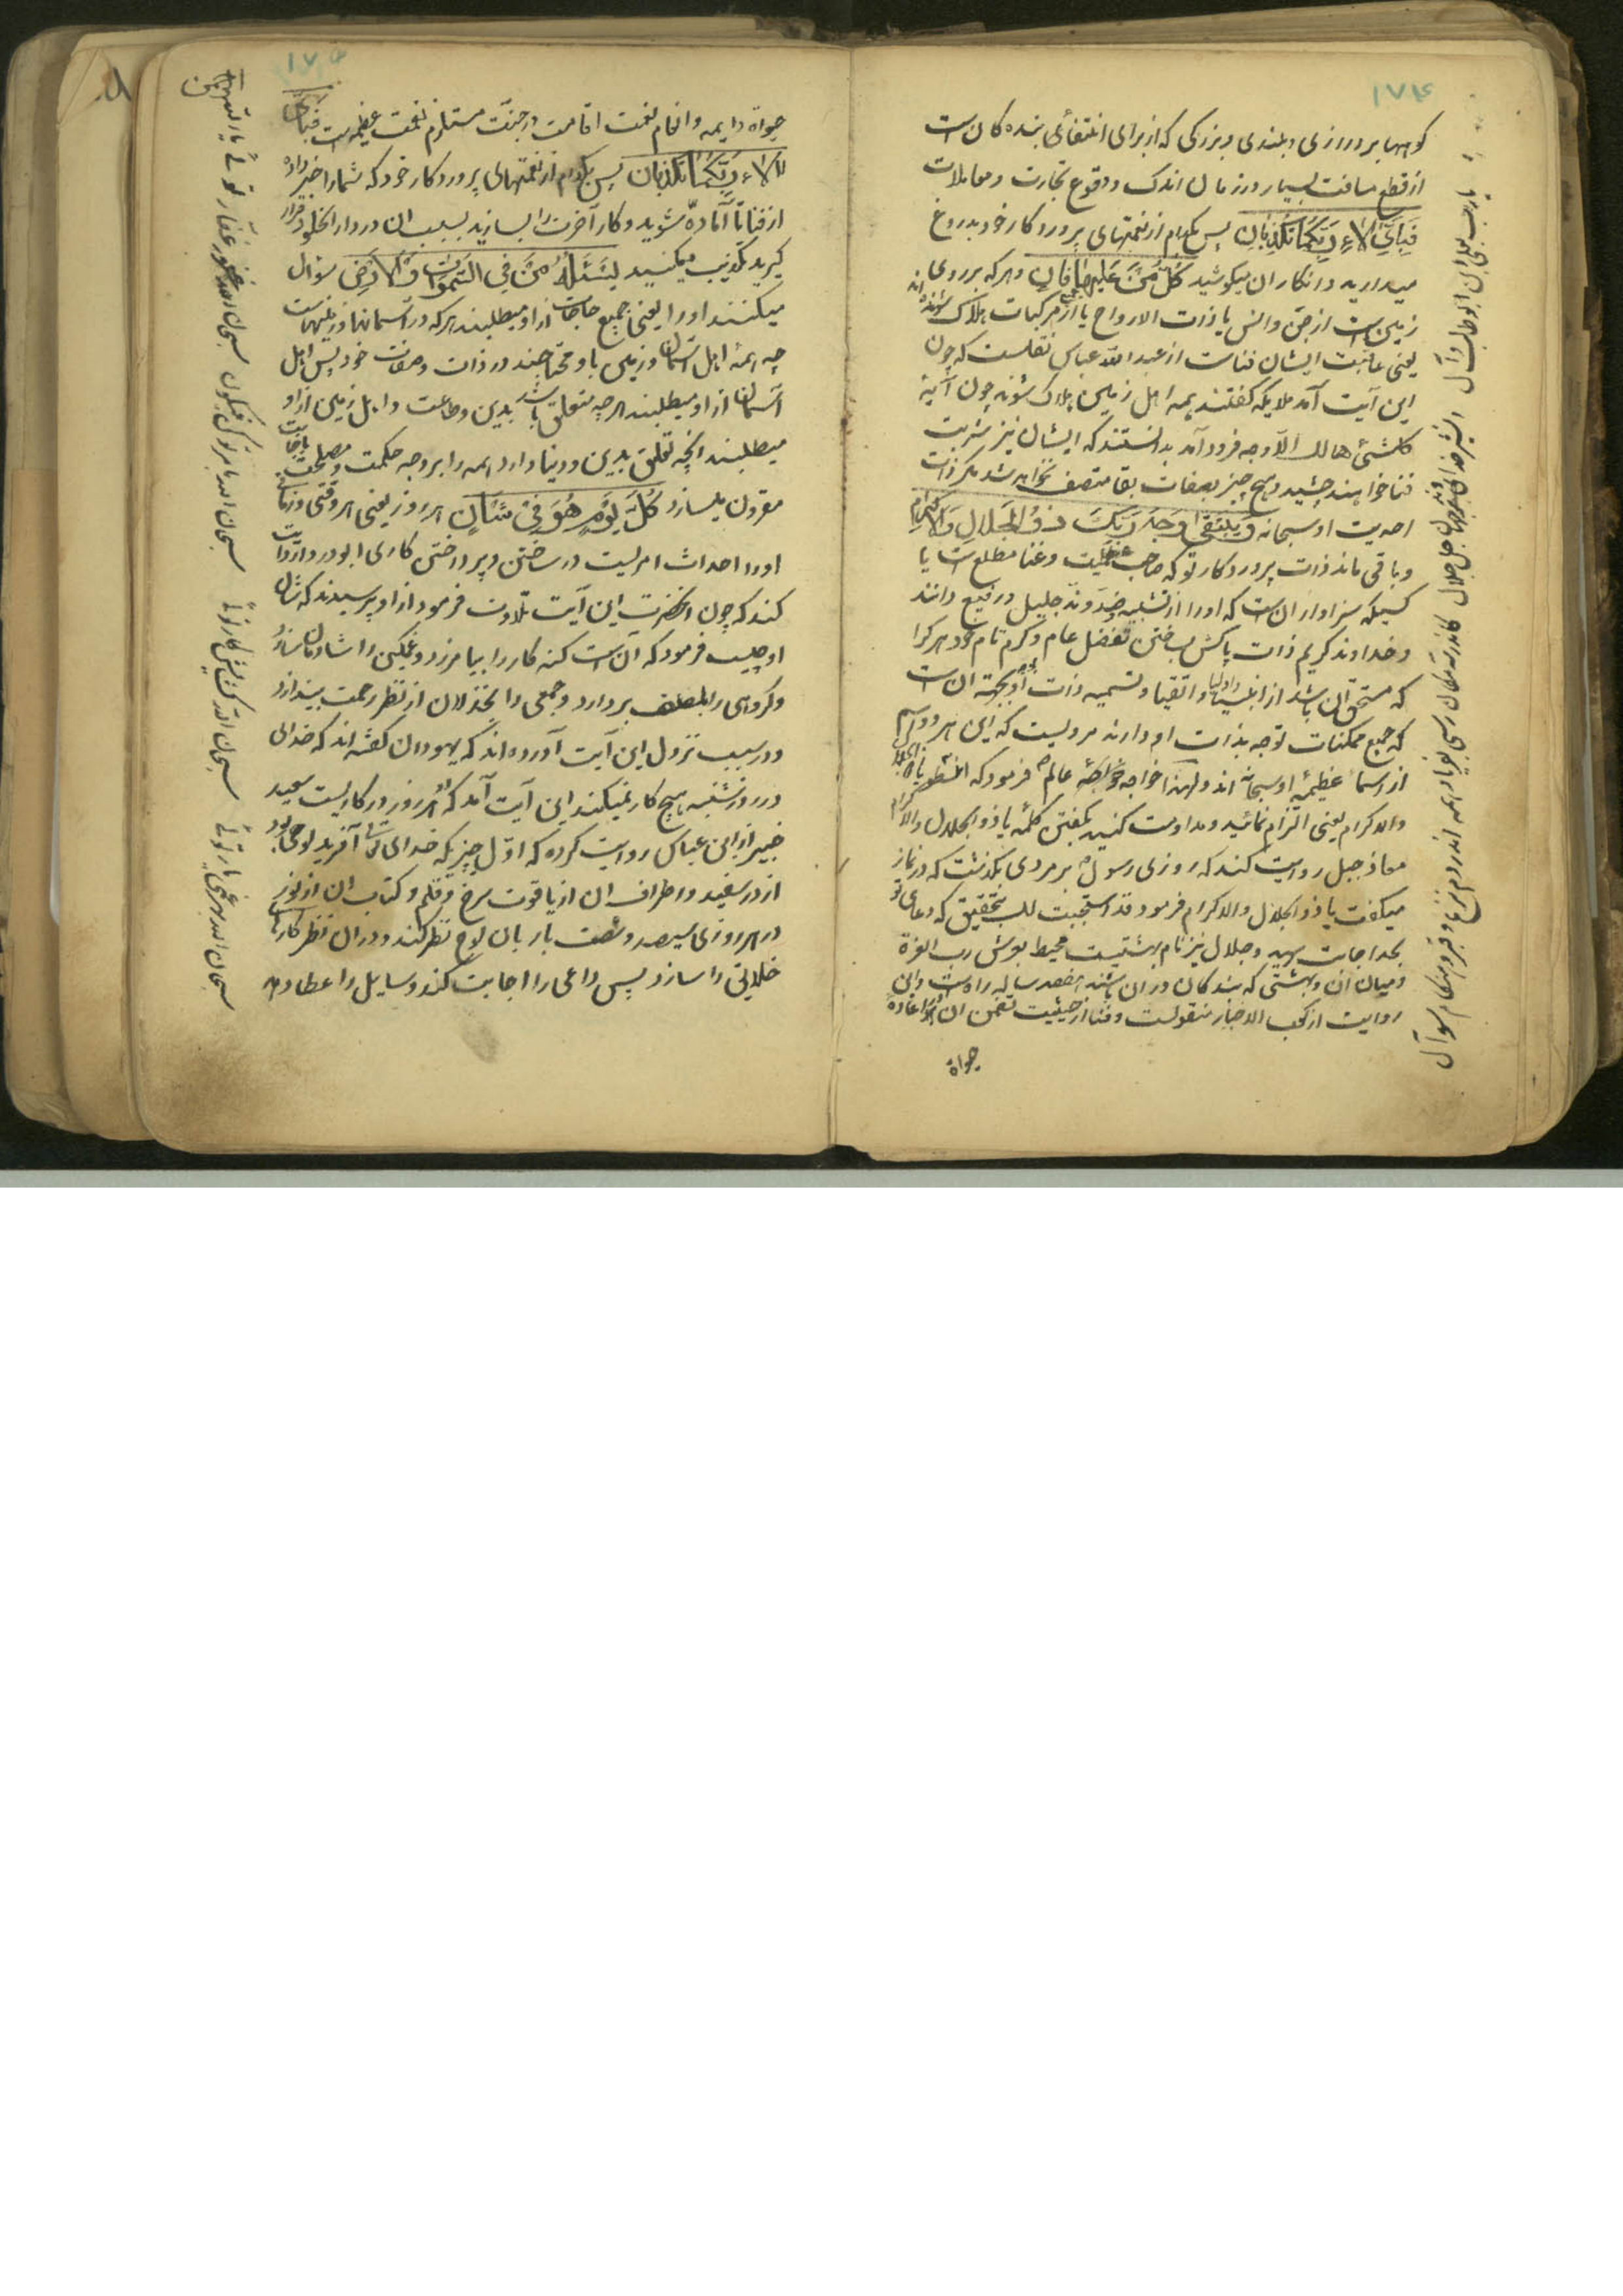 ۱۷۴
کوهها بر درازی و بلندی و بزرکی که از برای انتفاع بنده کان است
از قطع مسافت بسیار در زمان اندک و وقوع تجارت و معاملات
فَبِأَيِّ آلاءِ رَبِّكُمَا تُكَذِّبَانِ پس بکدام از نعمتهای پروردکار خود بدروغ
میدارید و انکار ان میکوشید كُلُّ مَنْ عَلَيْهَا فَانٍ و هر که بر روی
زمین است از جن و انس یا ذات الارواح یا از مرکبات هلاک شونده اند
یعنی عاقبت ایشان فناست از عبد الله عباس نقلست که چون
این آیت آمد ملایکه کفتند همه اهل زمین هلاک شوند چون آیه
کل شئ هالک الا وجهه فرود آمد بدانستند که ایشان نیز شربت
فنا خواهند چشید و هیچ چیز بصفات بقا متصف نخواهد شد مکر ذات
احدیت او سبحانه وَيَبْقَى وَجْهُ رَبِّكَ ذُو الْجَلالِ وَالإِكْرَامِ
و باقی ماند ذات پروردکار تو که صاحب عظمت و غنا مطلع است یا
کسیکه سزاوار انست که او را از تشبیه و ضد و ند جلیل و رفیع دانند
و خداوند کریم ذات پاکش بساختن تفضل عام و کرم تام خود هر کرا
که مستحق آن باشد از انبیا و اولیا و اتقیا و تسمیه ذات او بوجه بجهة ان است
که جمیع ممکنات توجه بذات او دارند مرویست که این هر دو اسم
از اسما عظیمه او سبحانه اند و لهذا خواجه عالم فرمود که الظوا بیا ذا الجلال
والاکرام یعنی التزام نمائید و مداومت کنید بکفتن کلمه یا ذو الجلال والاکرام
معاذ جبل روایت کند که روزی رسول بر مردی بکذشت که در نماز
میکفت یا ذو الجلال والاکرام فرمود قد استجیبت لک بتحقیق که دعای تو
بحد اجابت رسید و جلال نیز نام بهشتیست محیط بعرش رب العزة
و میان ان و بهشتی که بندکان در ان باشند هفصد ساله راه است و این
روایت از کعب الاحبار منقولست و فنا از حیثیت تضمن ان مر اعاده
حیواة
۱۷۵
حیواة دایمه و انعام نعمت اقامت در جنت مستلزم نعمت عظیمه است فَبِأَيِّ
آلاءِ رَبِّكُمَا تُكَذِّبَانِ پس بکدام از نعمتهای پروردکار خود که شما را خبر داده
از فنا تا آماده شوید و کار آخرت را بسازید بسبب ان در دار الخلود قرار
کیرید تکذیب میکنید يَسْئَلُهُ مَنْ فِي السَّمَوَاتِ وَالأَرْضِ سؤال
میکنند او را یعنی جمیع حاجات از او میطلبند هر که در آسمانها و زمینهاست
چه همه اهل آسمان و زمین باو محتاجند در ذات و صفات خود پس اهل
آسمان از او میطلبند هر چه متعلق باشد بدین و طاعت و اهل زمین از او
میطلبند انچه تعلق بدین و دنیا دارد همه را بر وجه حکمت و مصلحت باجابت
مقرون میسازد كُلَّ يَوْمٍ هُوَ فِي شَأْنٍ هر روز یعنی هر وقتی و زمانی
او را احداث امریست در ساختن و پرداختن کاری ابو دردا روایت
کند که چون انحضرت این آیت تلاوت فرمود از او پرسیدند که شان
او چیست فرمود که آن است کنه کار را بیامرزد و غمکین را شادمان سازد
و کروهی را بلطف بردارد و جمعی را بخذلان از نظر رحمت بیندازد
و در سبب نزول این آیت آورده اند که یهودان کفته اند که خدای
در روز شنبه هیچ کار نمیکند این آیت آمد که او هر روز در کاریست سعید
جبیر از ابن عباس روایت کرده که اول چیزیکه خدای تعالی آفرید لوحی بود
از در سفید و اطراف ان از یاقوت سرخ و قلم و کتاب ان از نور
در هر روزی سیصد و شصت بار بان لوح نظر کند و در ان نظر کارهای
خلایق را سازد پس داعی را اجابت کند و سایل را عطا دهد